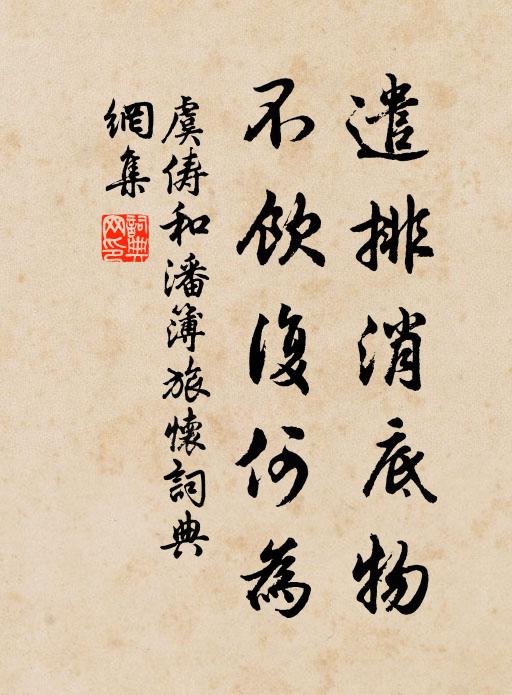 遣排消底物
不飲復何為
虞俦和潘簿旅懷詞典
網集
詞典网印